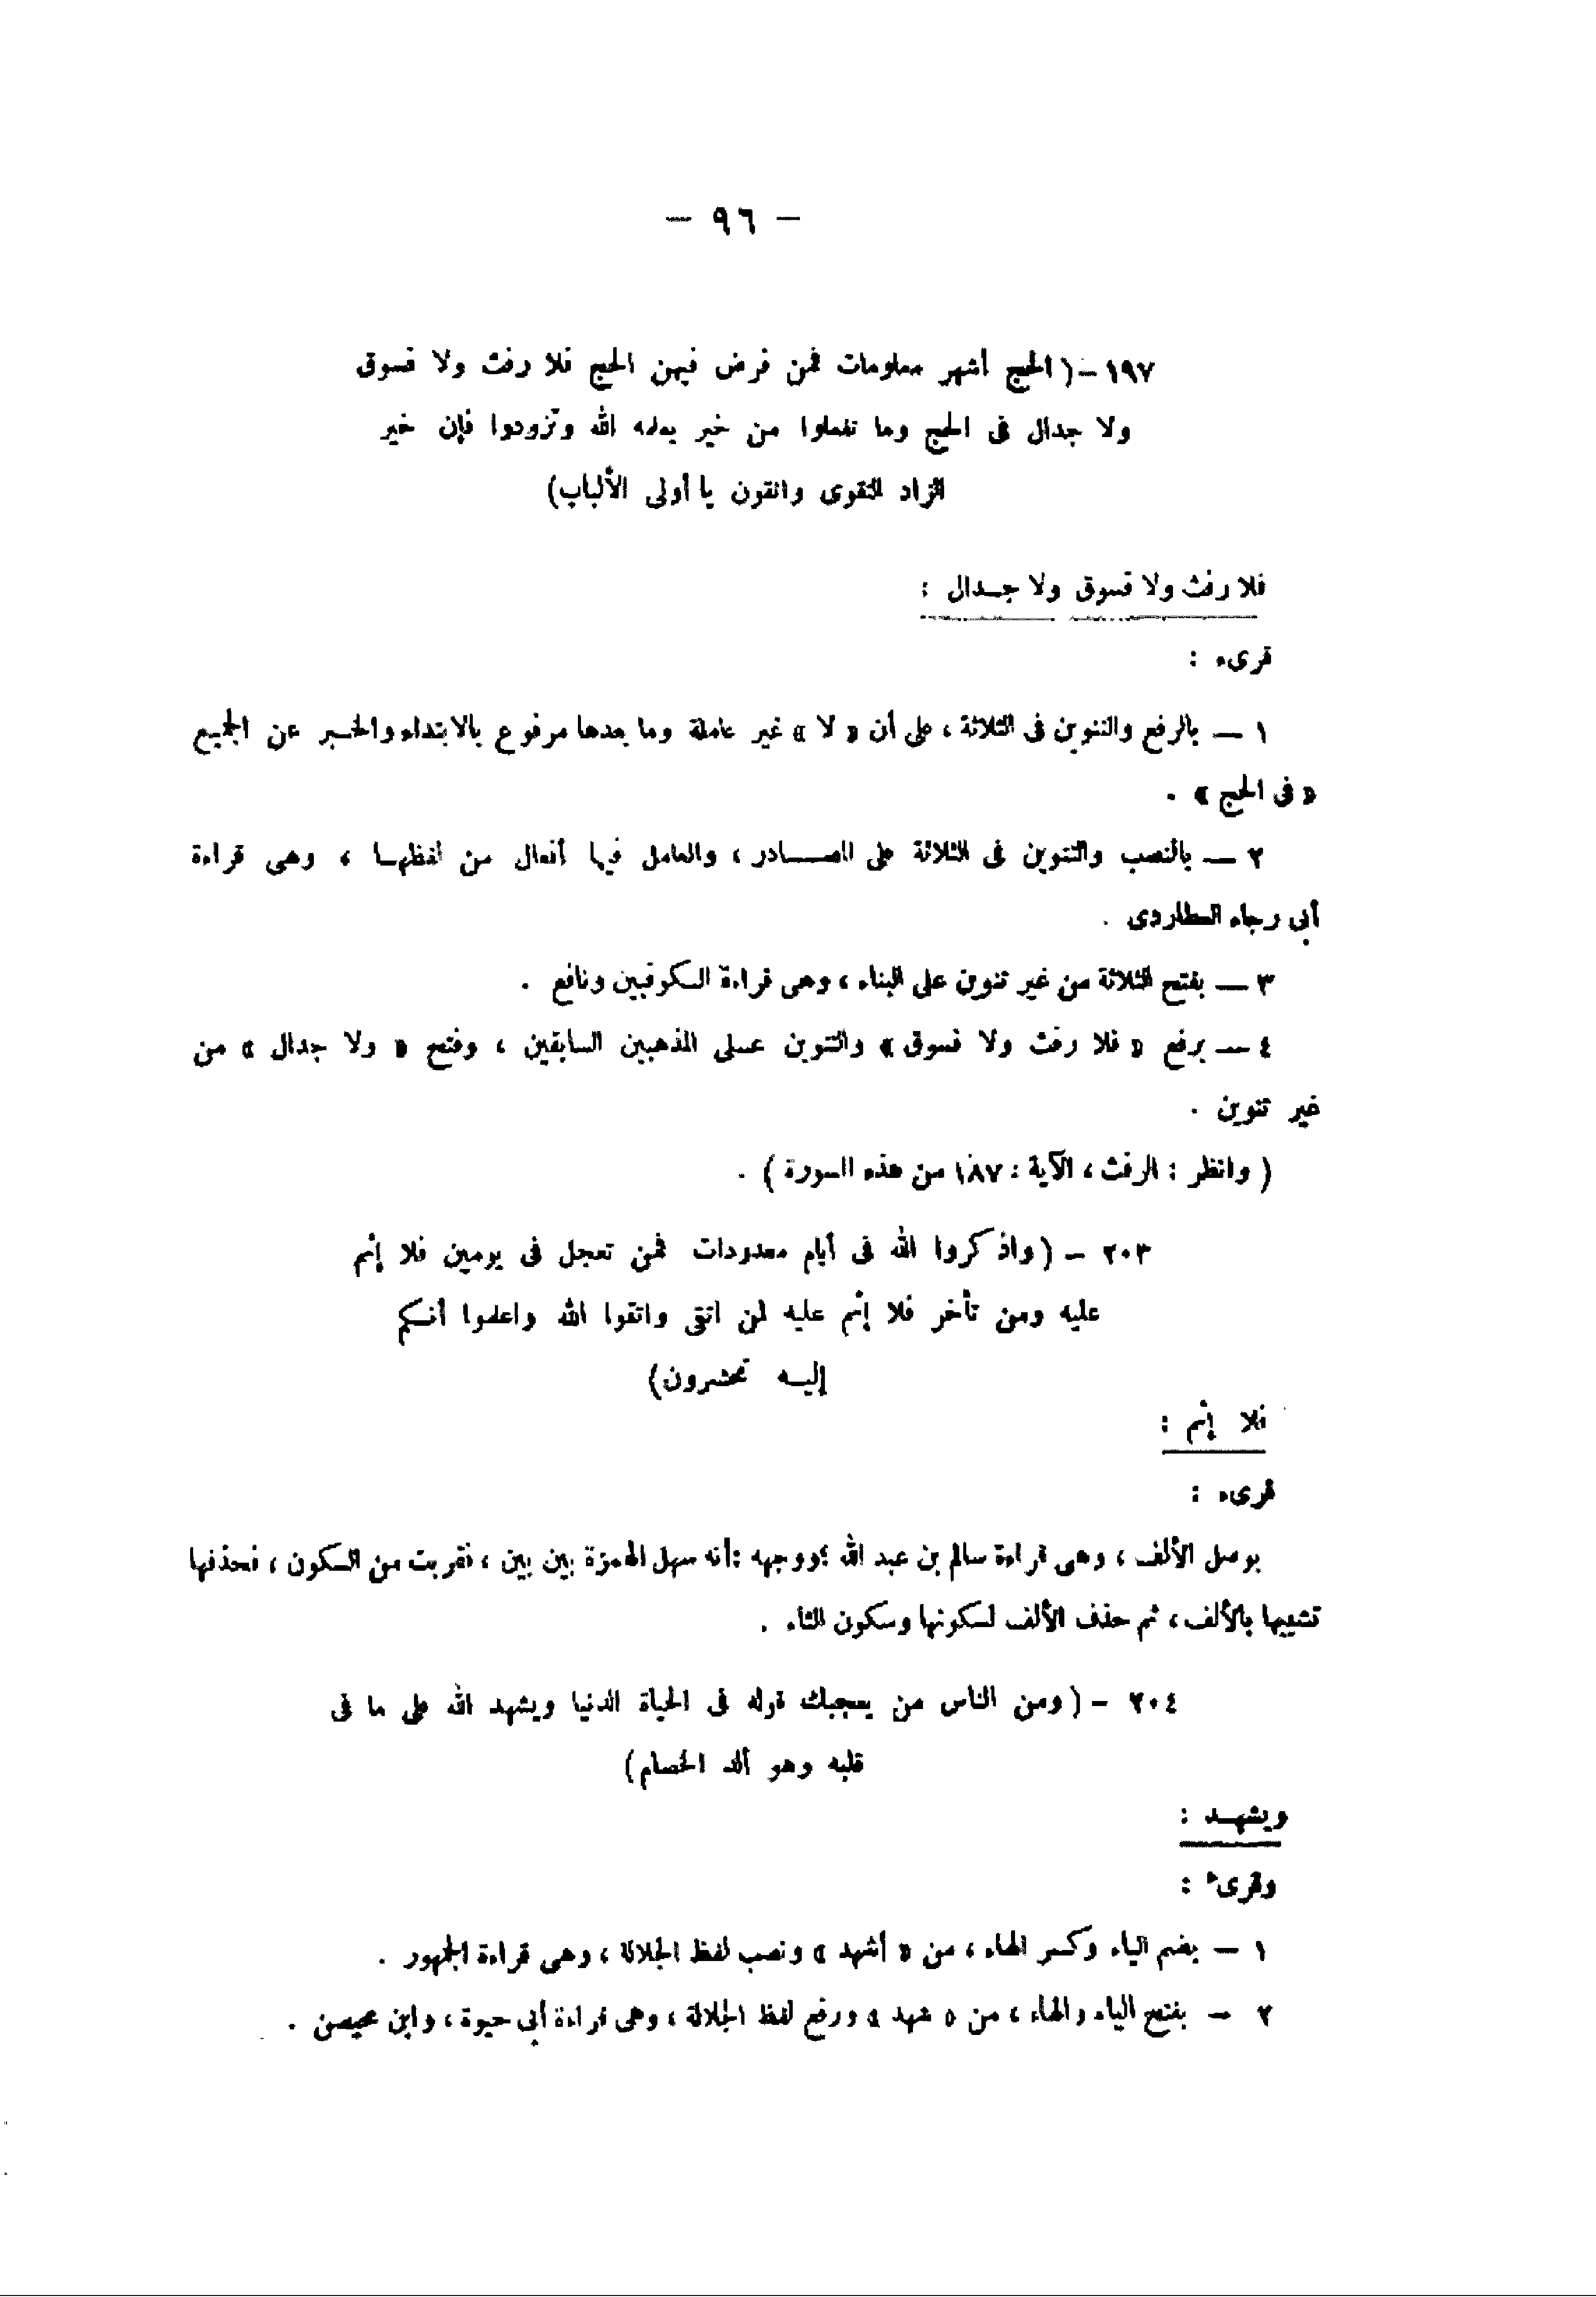 — ٩٦ —
١٩٧ – ( الحج أشهر معلومات فمن فرض فيهن الحج فلا رفث ولا فسوق
ولا جدال فى الحج وما تفعلوا من خير يعلمه الله وتزودوا فإن خير
الزاد التقوى واتقون يا أولى الألباب)
فلا رفث ولا فسوق ولا جـدال :
قرىء :
١ — بالرفع والتنوين فى الثلاثة ، على أن « لا » غير عاملة وما بعدها مرفوع بالابتداء والخـبر عن الجميع
« فى الحج » .
٢ — بالنصب والتنوين فى الثلاثة على المصـادر ، والعامل فيها أفعال من لفظهـا ، وهى قراءة
أبى رجاء العطاردى .
٣ — بفتح الثلاثة من غير تنوين على البناء ، وهى قراءة الـكوفيين ونافع .
٤ — برفع « فلا رفث ولا فسوق » والتنوين عـلى المذهبين السابقين ، وفتح « ولا جدال » من
غير تنوين .
( وانظر : الرفث ، الآية : ١٨٧ من هذه السورة ) .
٢٠٣ – ( واذكروا الله فى أيام معدودات فمن تعجل فى يومين فلا إثم
عليه ومن تأخر فلا إثم عليه لمن اتقى واتقوا الله واعلموا أنـكم
إليـه تحشرون)
فلا إثم :
قرىء :
بوصل الألف ، وهى قراءة سالم بن عبد الله ؛ ووجهه : أنه سهل الهمزة بين بين ، فقربت من السكون ، فحذفها
تشبيها بالألف ، ثم حذف الألف لسكونها وسكون الثاء .
٢٠٤ – ( ومن الناس من يعجبك قوله فى الحياة الدنيا ويشهد الله على ما فى
قلبه وهو ألد الخصام)
ويشهـد :
وقرئ :
١ – بضم الياء وكسر الهاء ، من « أشهد » ونصب لفظ الجلالة ، وهى قراءة الجمهور .
٢ – بفتح الياء والهاء ، من « شهد » ورفع لفظ الجلالة ، وهى قراءة أبى حيوة ، وابن محيصن .